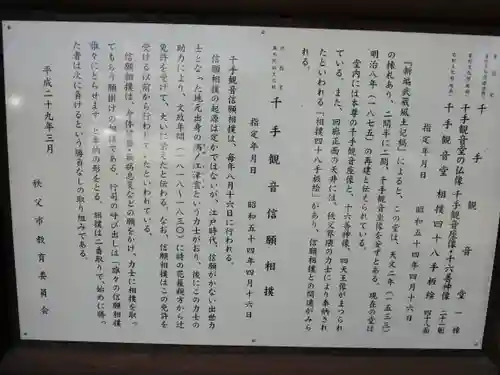 千手観音堂 一棟
千手観音堂の仏像 千手観音座像・十六善神像 二十一躯
千手観音堂 相撲四十八手板絵 四十八面
指定年月日 昭和五十四年四月十六日
『新編武蔵風土記稿』によると、この堂は、天文二年(一五三三)
の棟札あり、二間半に二間、千手観音坐像を安ずとある。現在の堂は
明治八年(一八七五)の再建と伝えられている。
堂内には本尊の千手観音座像と、十六善神像、四天王像がまつられ
ている。また、回廊正面の天井には、秩父界隈の力士により奉納され
たといわれる「相撲四十八手板絵」があり、信願相撲との関連がみら
れる。
千手観音信願相撲
指定年月日 昭和五十四年四月十六日
千手観音信願相撲は、毎年八月十六日に行われる。
信願相撲の起源は定かではないが、江戸時代、信願がかない出世力
士となった地元出身の
津雲という力士がおり、後にこの力士の
助力により、文政年間(一八一八~一八三〇)に時の花籠親方から辻
免許を受けて、大いに栄えたと伝わる。なお、信願相撲はこの免許を
受ける以前から行われていたといわれている。
信願相撲は、身体健全・無病息災などの願をかけ、力士に相撲を取っ
てもらう願掛けの相撲である。行司の呼び出しは「誰々の信願相撲
誰々にとらせます」と奉納の形をとる。相撲は二番取りで、始めに勝っ
た者は次に負けるという勝負なしの取り組みである。
平成二十九年三月
秩父市教育委員会